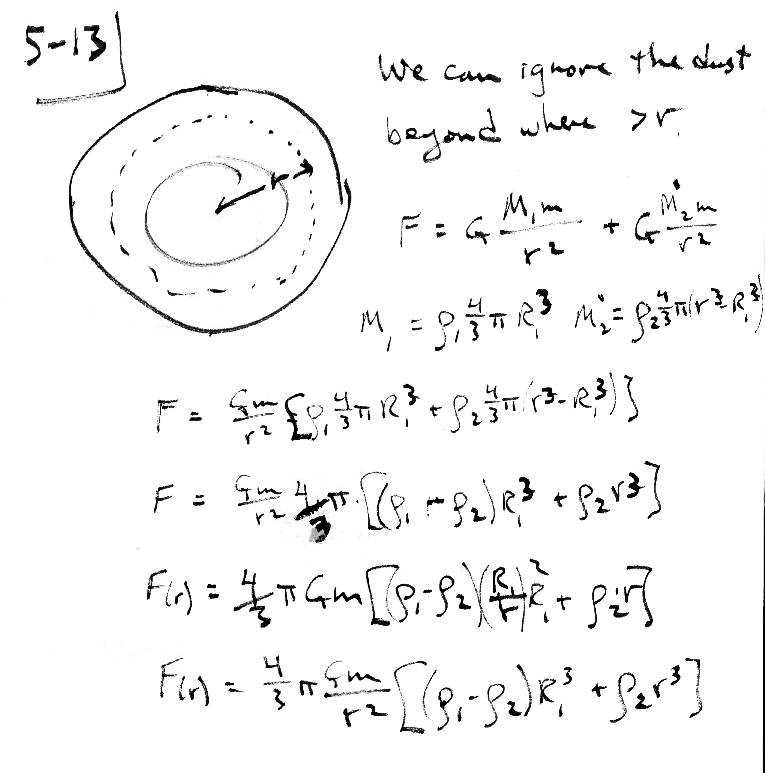 5-13
We can ignore the dust
beyond where > r.
r
F = G M₁m/r² + G M₂'m/r²
M₁ = ρ₁ 4/3 π R₁³ M₂' = ρ₂ 4/3 π (r³ - R₁³)
F = Gm/r² {ρ₁ 4/3 π R₁³ + ρ₂ 4/3 π (r³ - R₁³)}
F = Gm/r² 4/3 π · [(ρ₁ - ρ₂) R₁³ + ρ₂ r³]
F(r) = 4/3 π Gm [(ρ₁ - ρ₂)(R₁/r)² R₁ + ρ₂ r]
F(r) = 4/3 π Gm/r² [(ρ₁ - ρ₂) R₁³ + ρ₂ r³]